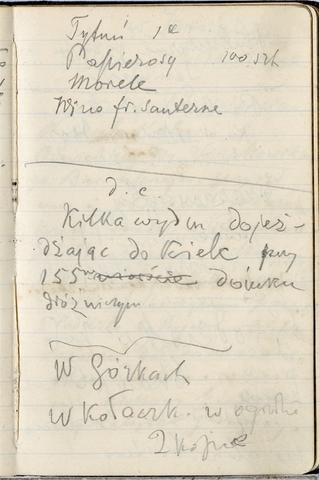 Tytuń 1
Papierosy 100 szt
Morele
Wino fr. Sauterne
d. c.
Kilka wydm dojeż-
dżając do Kielc przy
155 domku
dróżniczym
W Górkach
w Kołaczk. w
2 kopce